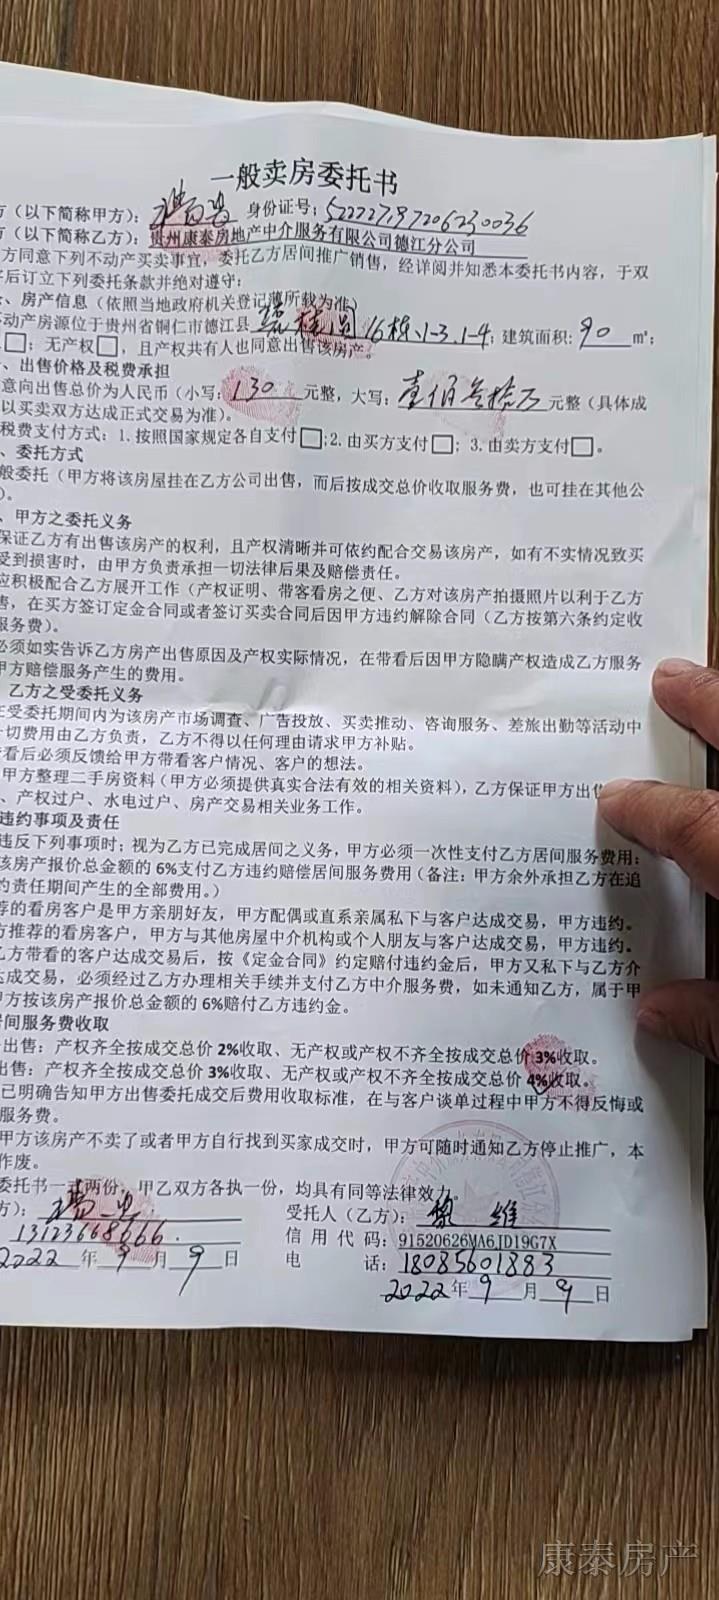 一般卖房委托书
方（以下简称甲方）： 身份证号：522227197206230036
方（以下简称乙方）：贵州康泰房地产中介服务有限公司德江分公司
方同意下列不动产买卖事宜，委托乙方居间推广销售，经详阅并知悉本委托书内容，于双
字后订立下列委托条款并绝对遵守：
、房产信息（依照当地政府机关登记薄所载为准）
不动产房源位于贵州省铜仁市德江县 碧桂园16栋1-3.1-4；建筑面积：90㎡；
□；无产权□，且产权共有人也同意出售该房产。
、出售价格及税费承担
意向出售总价为人民币（小写：130元整，大写：壹佰叁拾万元整（具体成
以买卖双方达成正式交易为准）。
税费支付方式：1.按照国家规定各自支付□;2.由买方支付□；3.由卖方支付□。
、委托方式
般委托（甲方将该房屋挂在乙方公司出售，而后按成交总价收取服务费，也可挂在其他公
）。
、甲方之委托义务
保证乙方有出售该房产的权利，且产权清晰并可依约配合交易该房产，如有不实情况致买
受到损害时，由甲方负责承担一切法律后果及赔偿责任。
应积极配合乙方展开工作（产权证明、带客看房之便、乙方对该房产拍摄照片以利于乙方
售，在买方签订定金合同或者签订买卖合同后因甲方违约解除合同（乙方按第六条约定收
服务费）。
必须如实告诉乙方房产出售原因及产权实际情况，在带看后因甲方隐瞒产权造成乙方服务
甲方赔偿服务产生的费用。
、乙方之受委托义务
在受委托期间内为该房产市场调查、广告投放、买卖推动、咨询服务、差旅出勤等活动中
一切费用由乙方负责，乙方不得以任何理由请求甲方补贴。
带看后必须反馈给甲方带看客户情况、客户的想法。
甲方整理二手房资料（甲方必须提供真实合法有效的相关资料），乙方保证甲方出售
、产权过户、水电过户、房产交易相关业务工作。
违约事项及责任
违反下列事项时；视为乙方已完成居间之义务，甲方必须一次性支付乙方居间服务费用：
该房产报价总金额的6%支付乙方违约赔偿居间服务费用（备注：甲方余外承担乙方在追
约责任期间产生的全部费用。）
荐的看房客户是甲方亲朋好友，甲方配偶或直系亲属私下与客户达成交易，甲方违约。
方推荐的看房客户，甲方与其他房屋中介机构或个人朋友与客户达成交易，甲方违约。
乙方带看的客户达成交易后，按《定金合同》约定赔付违约金后，甲方又私下与乙方介
达成交易，必须经过乙方办理相关手续并支付乙方中介服务费，如未通知乙方，属于甲
甲方按该房产报价总金额的6%赔付乙方违约金。
居间服务费收取
出售：产权齐全按成交总价2%收取、无产权或产权不齐全按成交总价3%收取。
出售：产权齐全按成交总价3%收取、无产权或产权不齐全按成交总价4%收取。
已明确告知甲方出售委托成交后费用收取标准，在与客户谈单过程中甲方不得反悔或
服务费。
甲方该房产不卖了或者甲方自行找到买家成交时，甲方可随时通知乙方停止推广，本
作废。
委托书一式两份，甲乙双方各执一份，均具有同等法律效力。
方）： 受托人（乙方）：黎维
13123668666. 信用代码：91520626MA6JD19G7X
2022年9月9日 电话：18085601883
2022年9月9日
康泰房产